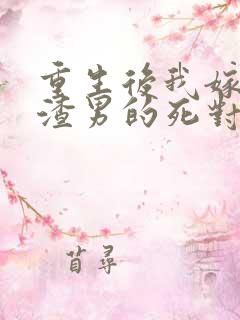 重生後我嫁
渣男的死對
苜尋